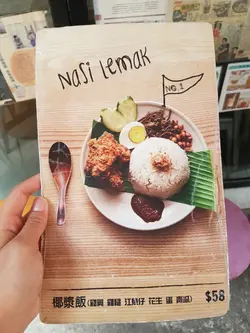 Nasi Lemak
NO.1
椰漿飯 江魚仔 花生 蛋 青瓜) $58